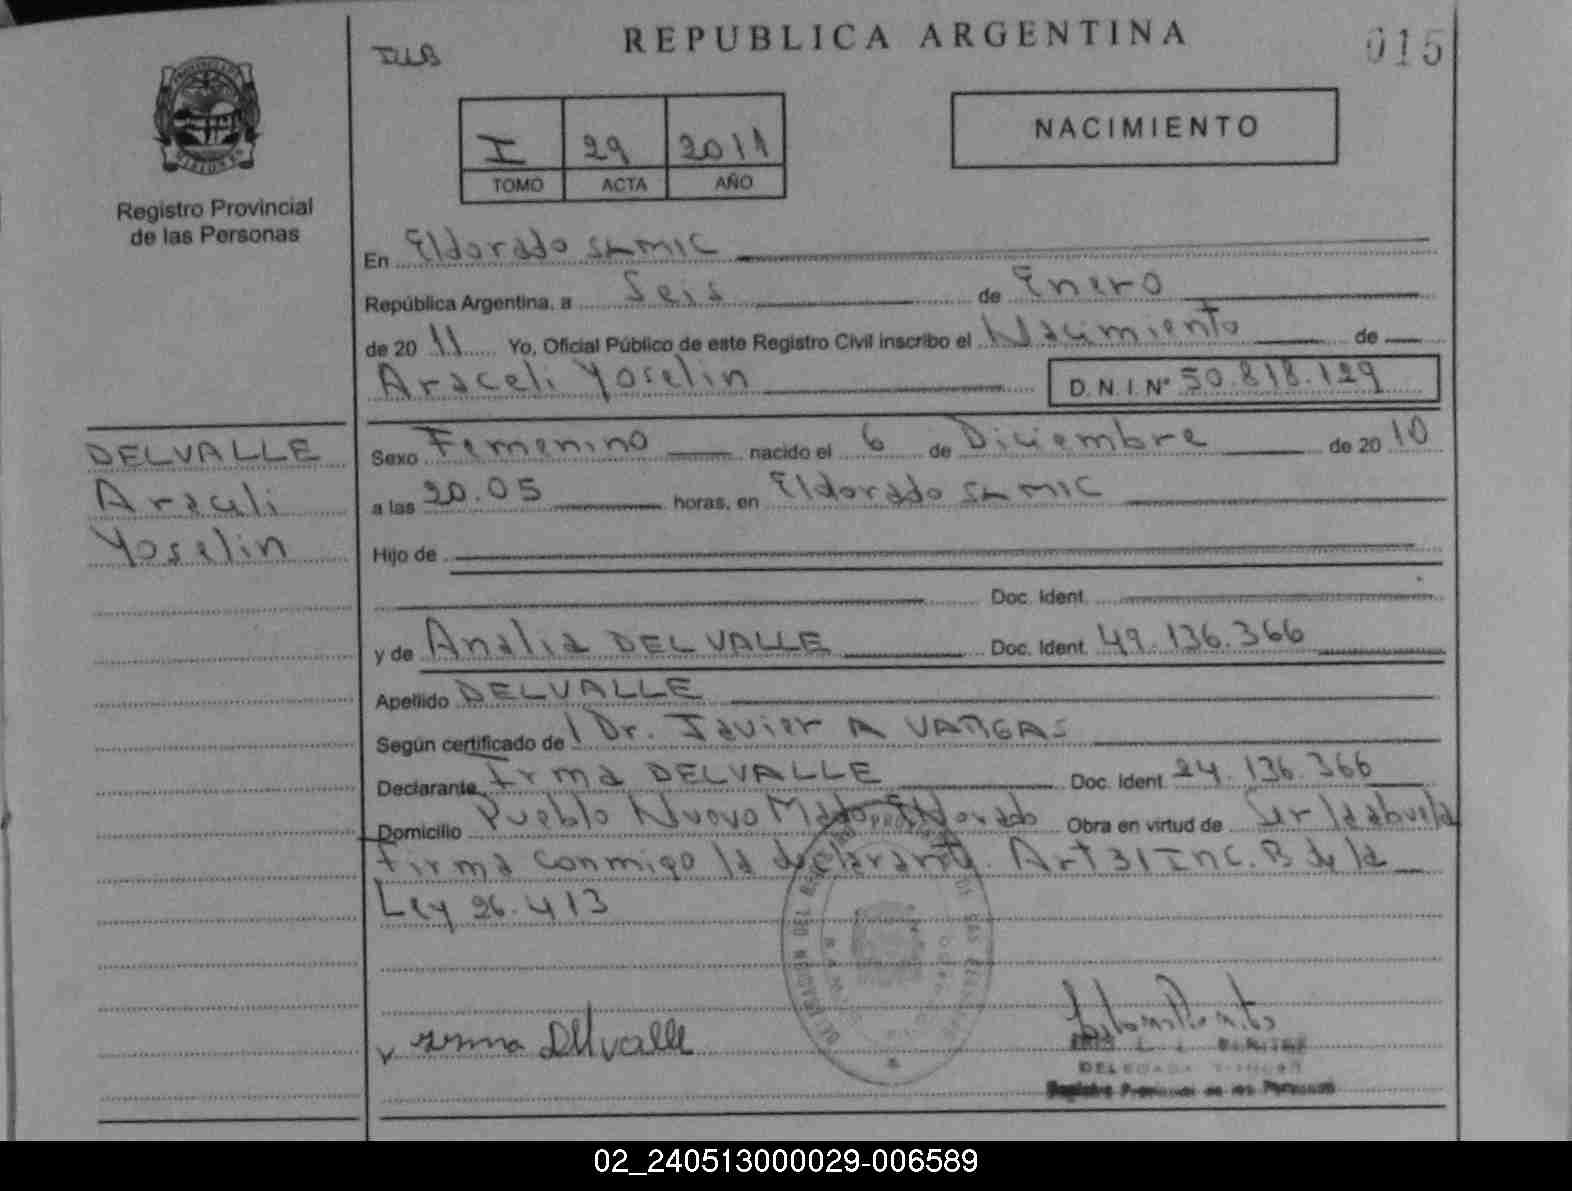 REPUBLICA ARGENTINA
015
I 29 2011
TOMO ACTA AÑO
NACIMIENTO
Registro Provincial
de las Personas
En Eldorado SAMIC
República Argentina, a Seis de Enero
de 2011 Yo, Oficial Público de este Registro Civil inscribo el Nacimiento de
Araceli Yoselin D.N.I. Nº 50.818.129
DELVALLE
Araceli
Yoselin
Sexo Femenino nacido el 6 de Diciembre de 2010
a las 20.05 horas, en Eldorado SAMIC
Hijo de
Doc. Ident.
y de Analia DELVALLE Doc. Ident. 49.136.366
Apellido DELVALLE
Según certificado de Dr. Javier A VARGAS
Declarante Irma DELVALLE Doc. Ident. 24.136.366
Domicilio Pueblo Nuevo Mado Eldorado Obra en virtud de Ser la abuela
firma conmigo la declarante. Art 31 Inc. B de la
Ley 26.413
Irma Delvalle
DELEGADA
Registro Provincial de las Personas
02_240513000029-006589